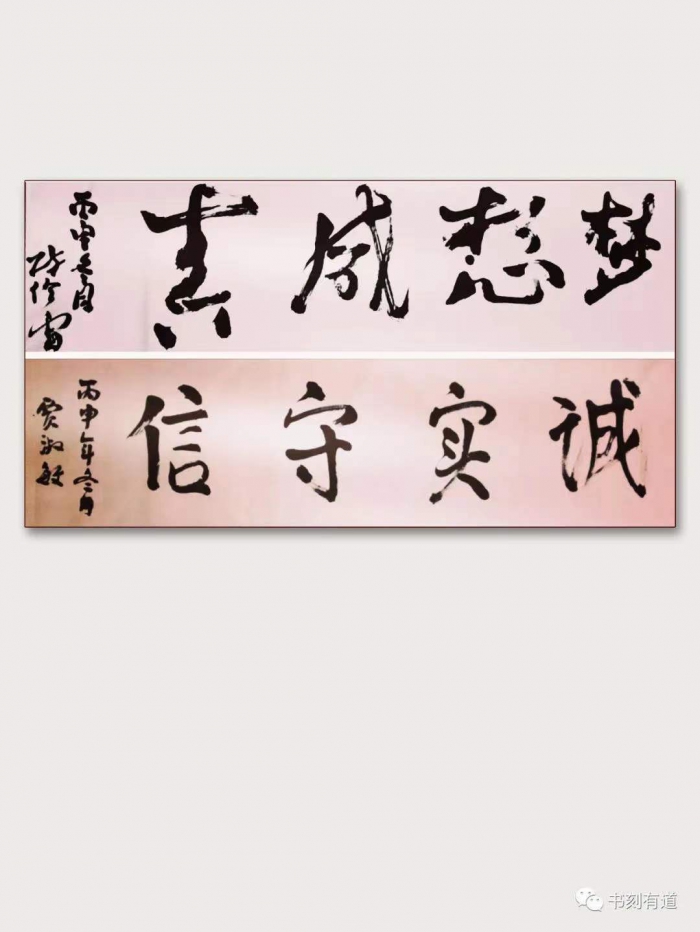 梦想成真
丙申冬月
诚实守信
丙申年冬月
贾淑敏
书刻有道